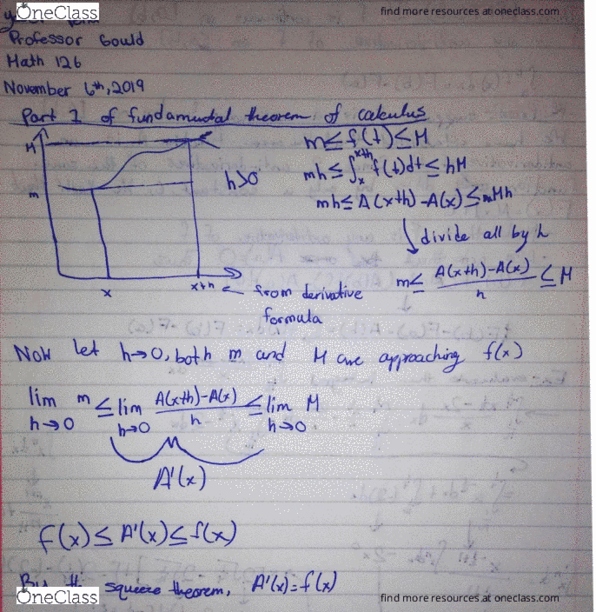 OneClass
find more resources at oneclass.com
Professor Gould
Math 126
November 6th, 2019
Part 1 of fundamental theorem of calculus
M
m
h>0
x
x+h
m≤f(t)≤M
mh≤∫ₓˣ⁺ʰ f(t)dt≤hM
mh≤A(x+h)-A(x)≤Mh
divide all by h
m≤ A(x+h)-A(x) / h ≤M
← from derivative
formula
Now let h→0, both m and M are approaching f(x)
lim m ≤ lim A(x+h)-A(x) / h ≤ lim M
h→0 h→0 h→0
A'(x)
f(x)≤A'(x)≤f(x)
By the squeeze theorem, A'(x)=f(x)
OneClass
find more resources at oneclass.com